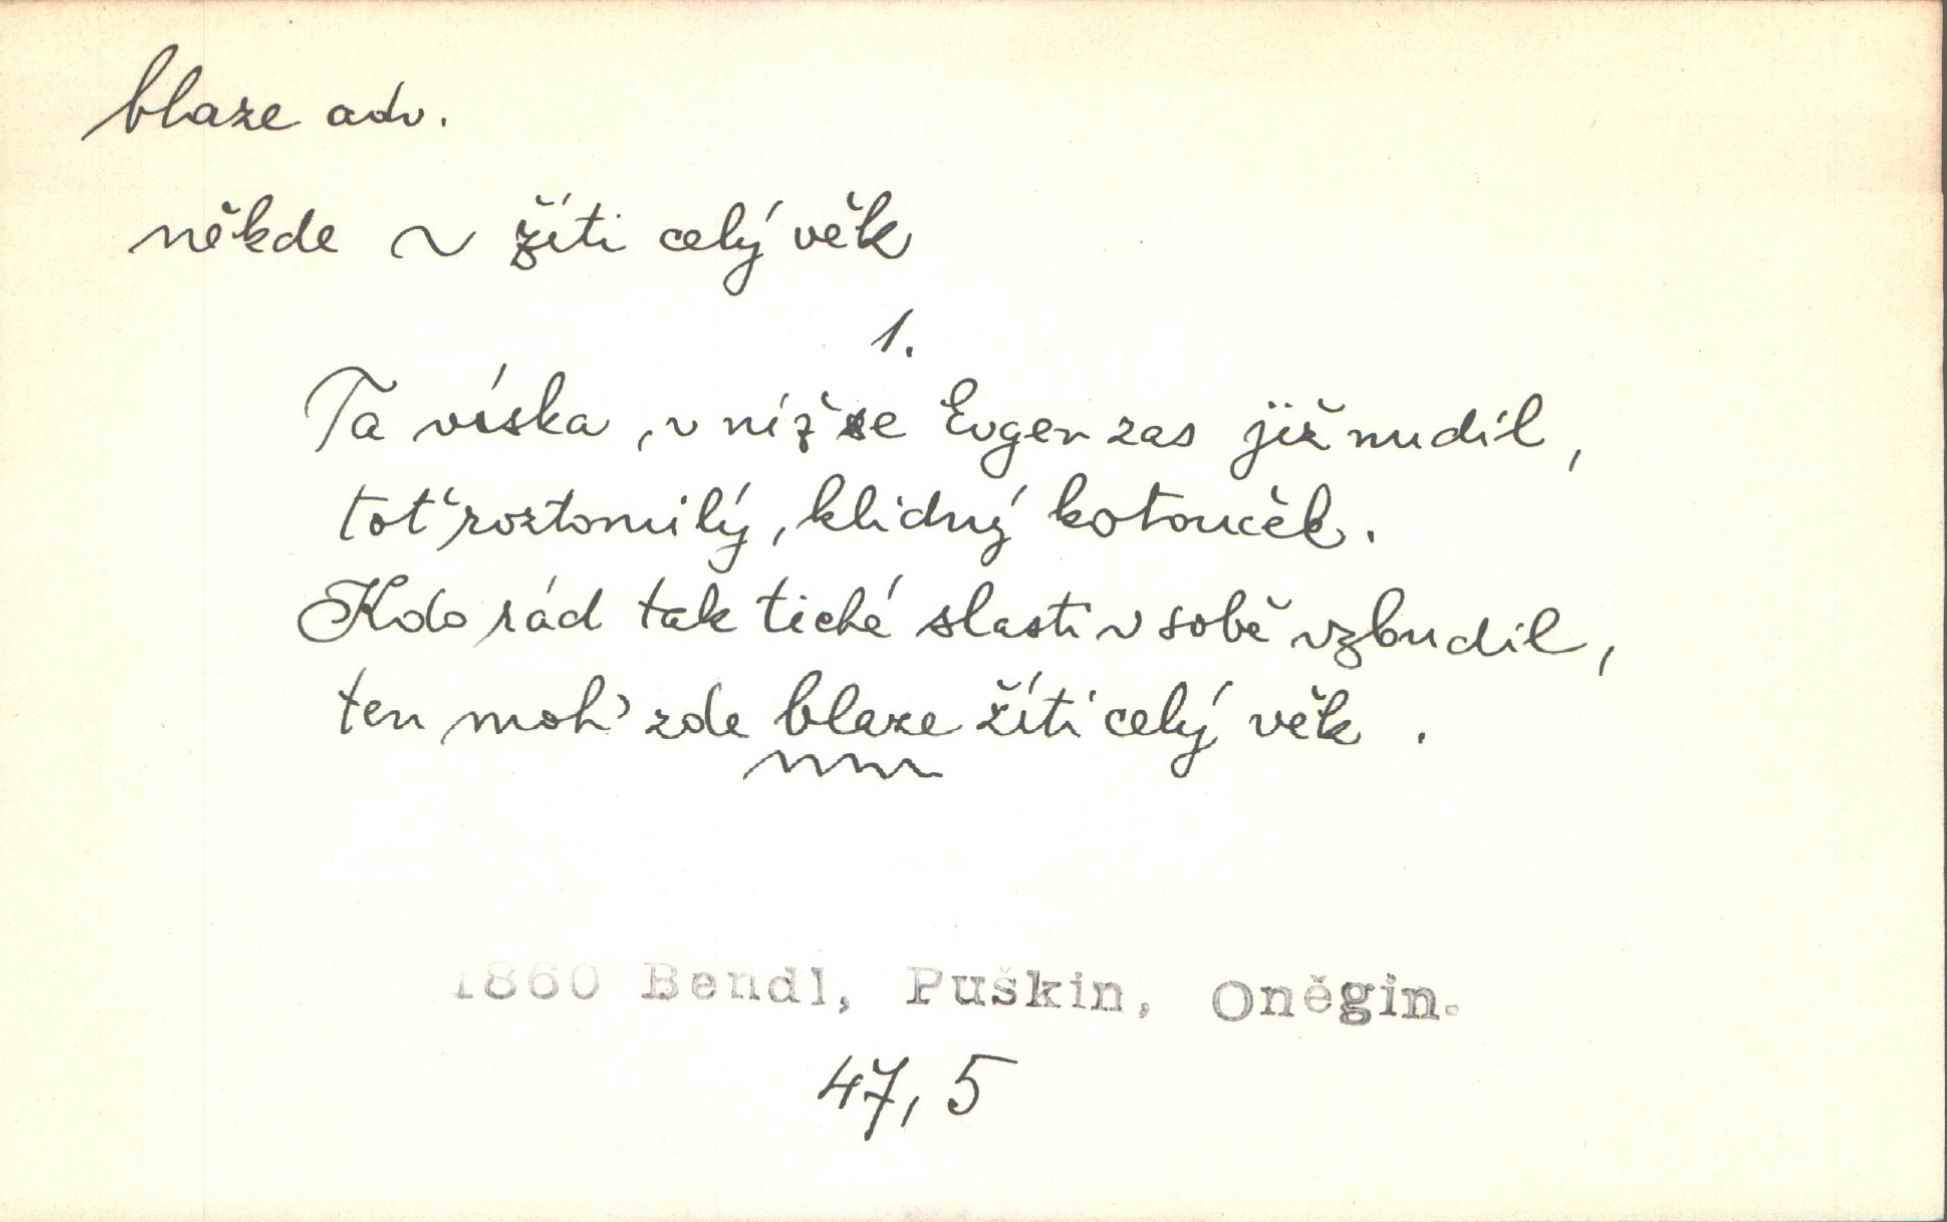 blaze adv.
někde ~ žíti celý věk
1.
Ta víska, v níž se Evgen zas již nudil,
toť roztomilý, klidný kotouček.
Kdo rád tak tiché slasti v sobě vzbudil,
ten moh' zde blaze žíti celý věk.
1860 Bendl, Puškin, Oněgin.
47, 5